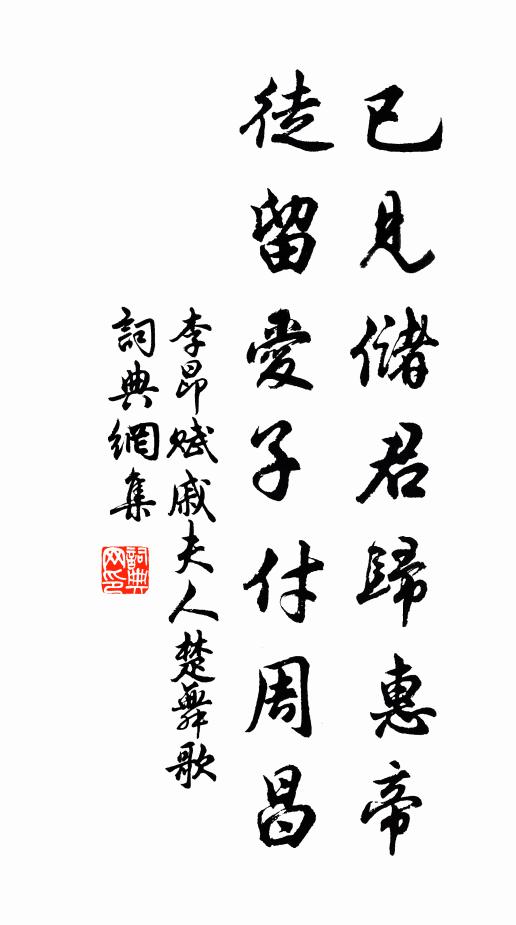 已見儲君歸惠帝
徒留愛子付周昌
李昂賦戚夫人楚舞歌
詞典網集
詞典网印